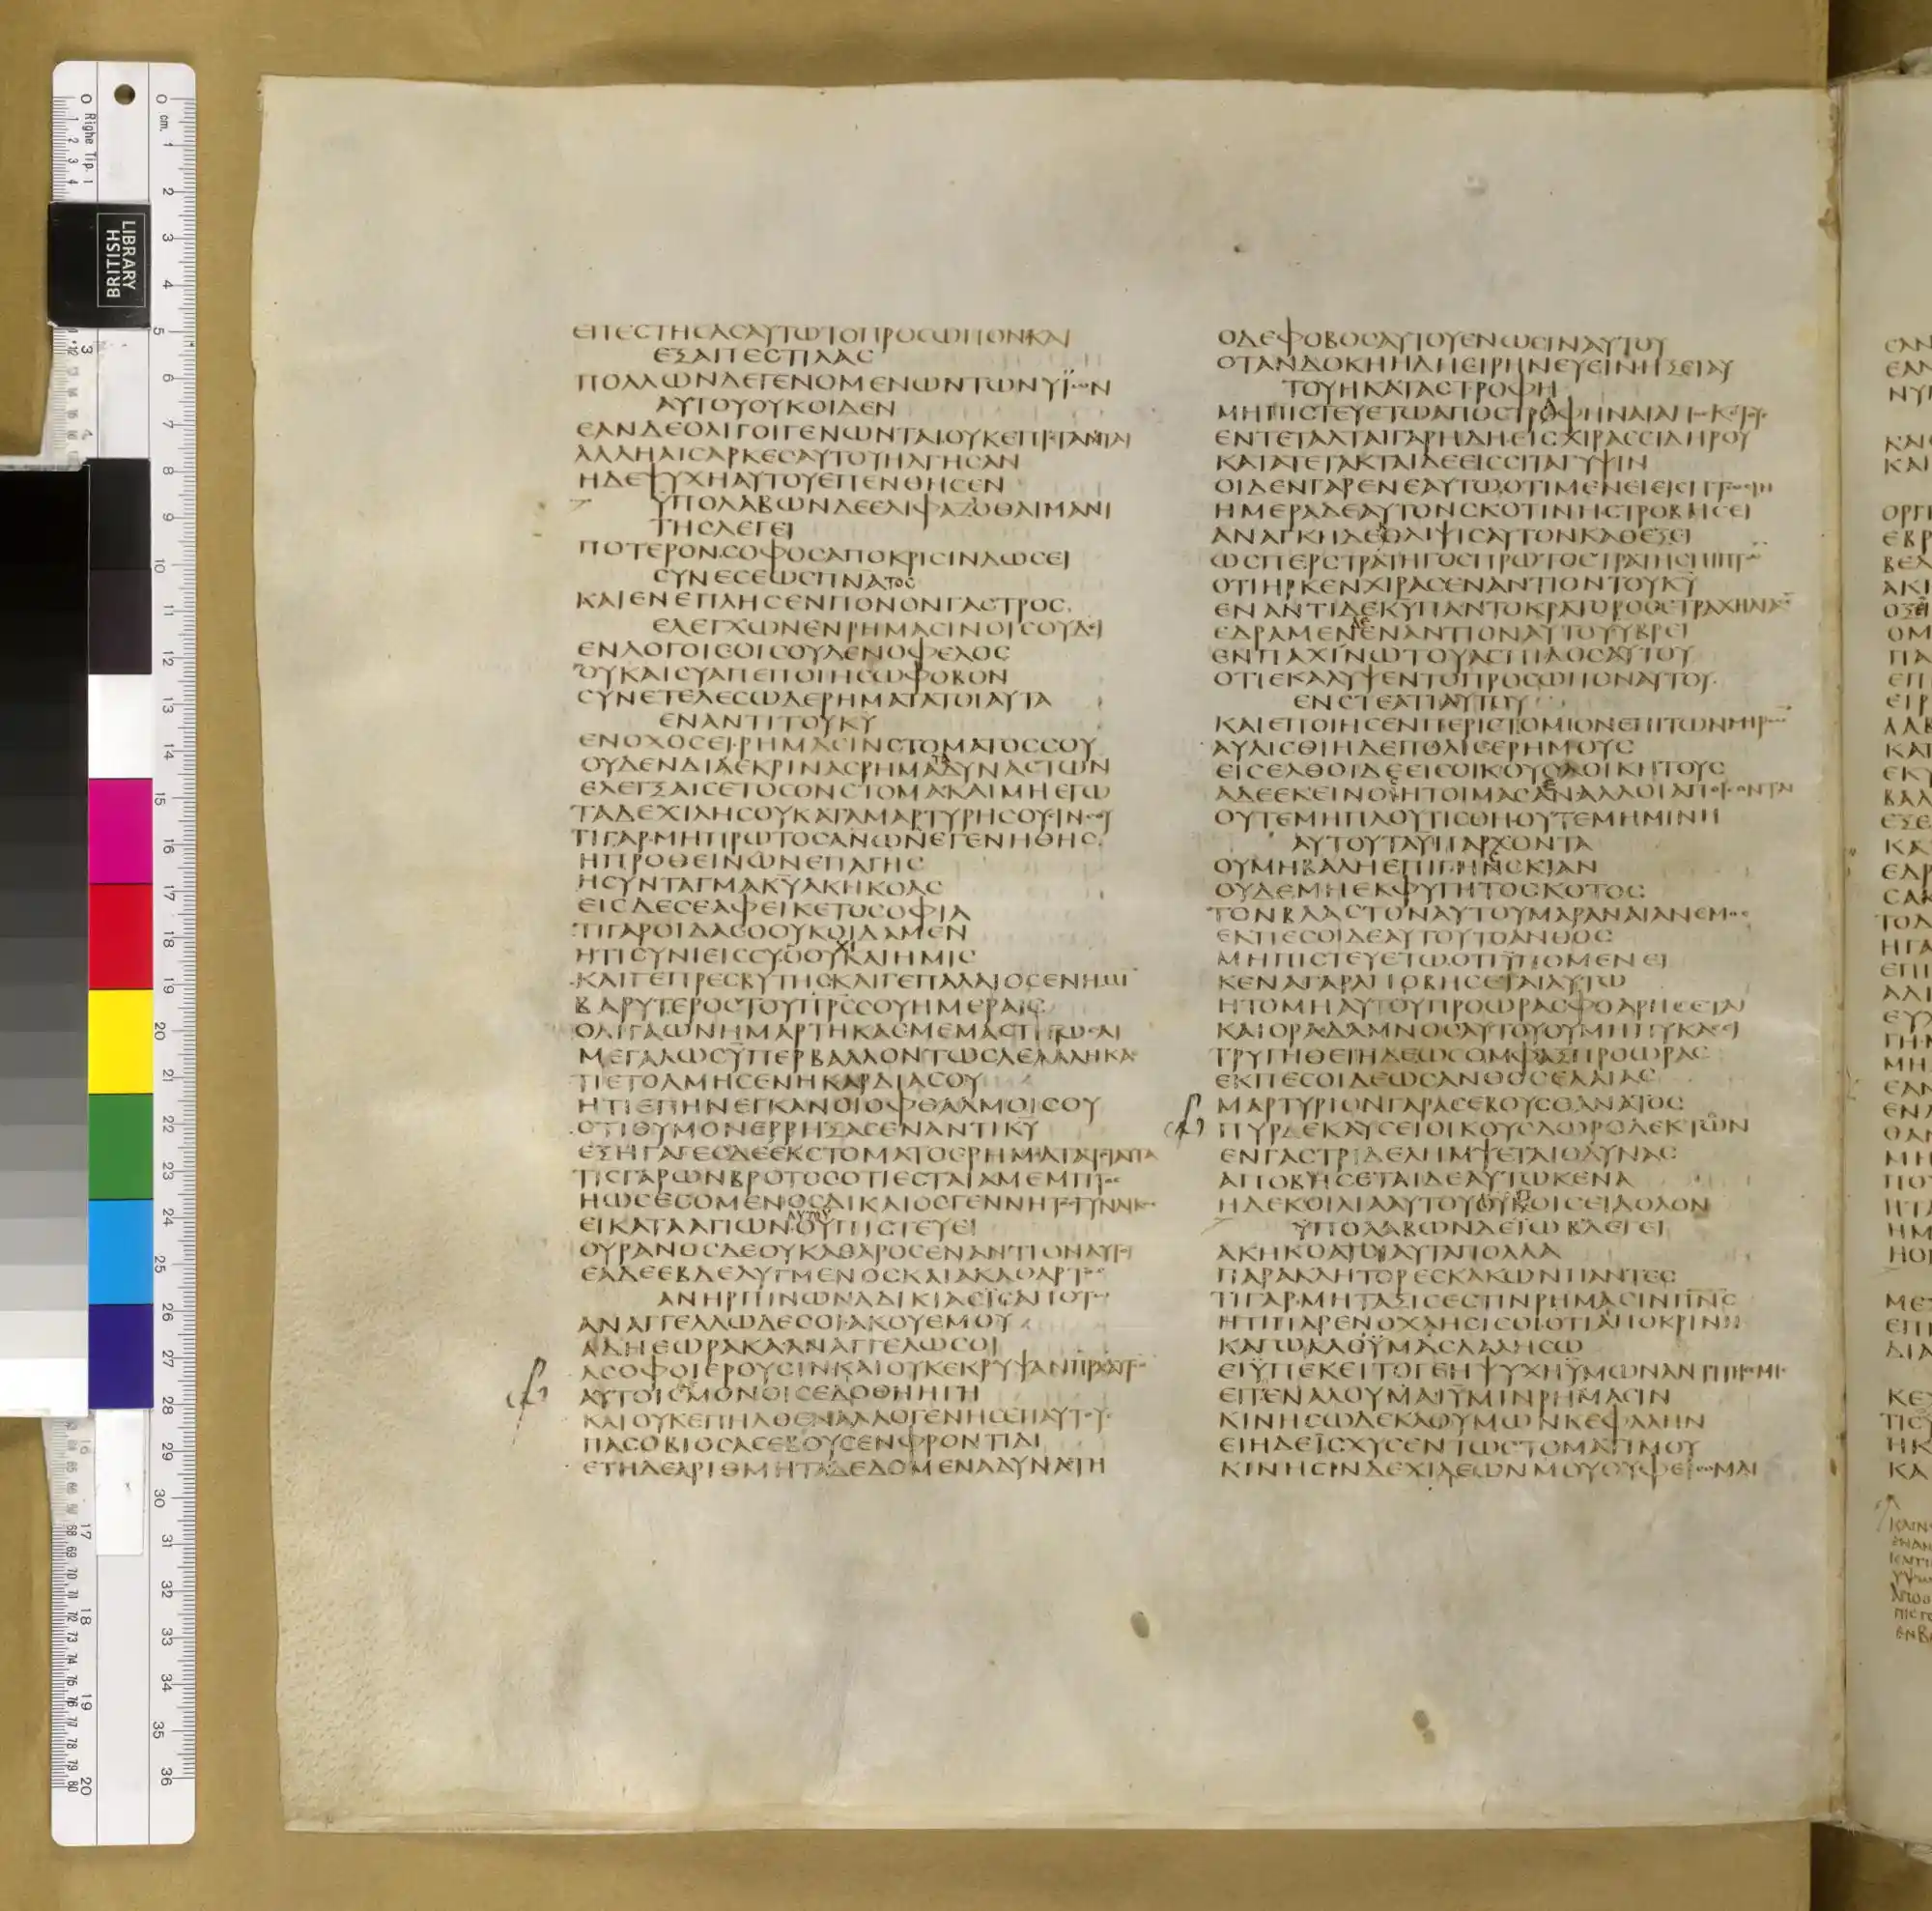 ΕΠΕΣΤΗСΑСΑΥΤΩΤΟΠΡΟСΩΠΟΝΚΑΙ
ΕΞΑΠΕСΤΙΛΑС
ΠΟΛΛΩΝΔΕΓΕΝΟΜΕΝΩΝΤΩΝΥΪΩΝ
ΑΥΤΟΥΟΥΚΟΙΔΕΝ
ΕΑΝΔΕΟΛΙΓΟΙΓΕΝΩΝΤΑΙΟΥΚΕΠΙСΤΑΤΑΙ
ΑΛΛΗΑΙСΑΡΚΕСΑΥΤΟΥΗΛΓΗСΑΝ
ΗΔΕΨΥΧΗΑΥΤΟΥΕΠΕΝΘΗСΕΝ
ΫΠΟΛΑΒΩΝΔΕΕΛΙΦΑΖΟΘΑΙΜΑΝΙ
ΤΗСΛΕΓΕΙ
ΠΟΤΕΡΟΝСΟΦΟСΑΠΟΚΡΙСΙΝΔΩСΕΙ
СΥΝΕСΕΩСΠΝΑΤΟС
ΚΑΙΕΝΕΠΛΗСΕΝΠΟΝΟΝΓΑСΤΡΟС
ΕΛΕΓΧΩΝΕΝΡΗΜΑСΙΝΟΙСΟΥΔΕΙ
ΕΝΛΟΓΟΙСΟΙСΟΥΔΕΝΟΦΕΛΟС
ΟΥΚΑΙСΥΑΠΕΠΟΙΗСΩΦΟΒΟΝ
СΥΝΕΤΕΛΕСΩΔΕΡΗΜΑΤΑΤΟΙΑΥΤΑ
ΕΝΑΝΤΙΤΟΥΚΥ
ΕΝΟΧΟСΕΙΡΗΜΑСΙΝСΤΟΜΑΤΟССΟΥ
ΟΥΔΕΝΔΙΑΕΚΡΙΝΑСΡΗΜΑΤΑΔΥΝΑСΤΩΝ
ΕΛΕΓΞΑΙСΕΤΟСΟΝСΤΟΜΑΚΑΙΜΗΕΓΩ
ΤΑΔΕΧΙΛΗСΟΥΚΑΤΑΜΑΡΤΥΡΗСΟΥСΙΝСΟΥ
ΤΙΓΑΡΜΗΠΡΩΤΟСΑΝΩΝΕΓΕΝΗΘΗС
ΗΠΡΟΘΕΙΝΩΝΕΠΑΓΗС
ΗСΥΝΤΑΓΜΑΚΥΑΚΗΚΟΑС
ΕΙСΔΕСΕΑΦΕΙΚΕΤΟСΟΦΙΑ
ΤΙΓΑΡΟΙΔΑСΟΟΥΚΟΙΔΑΜΕΝ
ΗΤΙСΥΝΙΕΙССΥΟΟΥΧΙΚΑΙΗΜΙС
ΚΑΙΓΕΠΡΕСΒΥΤΗСΚΑΙΓΕΠΑΛΑΙΟСΕΝΗΜΙ
ΒΑΡΥΤΕΡΟСΤΟΥΠΡССΟΥΗΜΕΡΑΙС
ΟΛΙΓΑΩΝΗΜΑΡΤΗΚΑСΜΕΜΑСΤΙΓΩСΑΙ
ΜΕΓΑΛΩСΫΠΕΡΒΑΛΛΟΝΤΩСΛΕΛΑΛΗΚΑС
ΤΙΕΤΟΛΜΗСΕΝΗΚΑΡΔΙΑСΟΥ
ΗΤΙΕΠΗΝΕΓΚΑΝΟΙΟΦΘΑΛΜΟΙСΟΥ
ΟΤΙΘΥΜΟΝΕΡΡΗΞΑСΕΝΑΝΤΙΚΥ
ΕΞΗΓΑΓΕСΔΕΕΚСΤΟΜΑΤΟСΡΗΜΑΤΑΤΟΙΑΥΤΑ
ΤΙСΓΑΡΩΝΒΡΟΤΟСΟΤΙΕСΤΑΙΑΜΕΜΠΤΟС
ΗΩСΕСΟΜΕΝΟСΔΙΚΑΙΟСΓΕΝΝΗΤΟСΓΥΝΑΙΚΟС
ΕΙΚΑΤΑΑΓΙΩΝΑΥΤΟΥΟΥΠΙСΤΕΥΕΙ
ΟΥΡΑΝΟСΔΕΟΥΚΑΘΑΡΟСΕΝΑΝΤΙΟΝΑΥΤΟΥ
ΕΑΔΕΕΒΔΕΛΥΓΜΕΝΟСΚΑΙΑΚΑΘΑΡΤΟС
ΑΝΗΡΠΙΝΩΝΑΔΙΚΙΑСΪСΑΠΟΤΩ
ΑΝΑΓΓΕΛΛΩΔΕСΟΙΑΚΟΥΕΜΟΥ
ΑΔΗΕΩΡΑΚΑΑΝΑΓΓΕΛΩСΟΙ
ΑСΟΦΟΙΕΡΟΥСΙΝΚΑΙΟΥΚΕΚΡΥΨΑΝΠΡΑΥΤ
ΑΥΤΟΙСΜΟΝΟΙСΕΔΟΘΗΗΓΗ
ΚΑΙΟΥΚΕΠΗΛΘΕΝΑΛΛΟΓΕΝΗСΕΠΑΥΤΟΥС
ΠΑСΟΒΙΟСΑСΕΒΟΥСΕΝΦΡΟΝΤΙΔΙ
ΕΤΗΔΕΑΡΙΘΜΗΤΑΔΕΔΟΜΕΝΑΔΥΝΑСΤΗ
ΟΔΕΦΟΒΟСΑΥΤΟΥΕΝΩСΙΝΑΥΤΟΥ
ΟΤΑΝΔΟΚΗΗΔΗΕΙΡΗΝΕΥΕΙΝΗΞΕΙΑΥ
ΤΟΥΗΚΑΤΑСΤΡΟΦΗ
ΜΗΠΙСΤΕΥΕΤΩΑΠΟСΤΡΑΦΗΝΑΙΑΠΟСΚΟΤΟΥС
ΕΝΤΕΤΑΛΤΑΙΓΑΡΗΔΗΕΙСΧΙΡΑССΙΔΗΡΟΥ
ΚΑΤΑΤΕΤΑΚΤΑΙΔΕΕΙССΙΤΑΓΥΨΙΝ
ΟΙΔΕΝΓΑΡΕΝΕΑΥΤΩΟΤΙΜΕΝΕΙΕΙСΠΤΩΜΑ
ΗΜΕΡΑΔΕΑΥΤΟΝСΚΟΤΙΝΗСΤΡΟΒΗСΕΙ
ΑΝΑΓΚΗΔΕΘΛΙΨΙСΑΥΤΟΝΚΑΘΕΞΕΙ
ΩСΠΕΡСΤΡΑΤΗΓΟСΠΡΩΤΟСΤΡΑΤΗСΠΙΠΤΩΝ
ΟΤΙΗΡΚΕΝΧΙΡΑСΕΝΑΝΤΙΟΝΤΟΥΚΥ
ΕΝΑΝΤΙΔΕΚΥΠΑΝΤΟΚΡΑΤΟΡΟСΕΤΡΑΧΗΛΙΑСΕΝ
ΕΔΡΑΜΕΝΔΕΕΝΑΝΤΙΟΝΑΥΤΟΥΥΒΡΕΙ
ΕΝΠΑΧΙΝΩΤΟΥΑСΠΙΔΟСΑΥΤΟΥ
ΟΤΙΕΚΑΛΥΨΕΝΤΟΠΡΟСΩΠΟΝΑΥΤΟΥ
ΕΝСΤΕΑΤΙΑΥΤΟΥ
ΚΑΙΕΠΟΙΗСΕΝΠΕΡΙСΤΟΜΙΟΝΕΠΙΤΩΝΜΗΡΙΩΝ
ΑΥΛΙСΘΙΗΔΕΠΟΛΙСΕΡΗΜΟΥС
ΕΙСΕΛΘΟΙΔΕΕΙСΟΙΚΟΥСΑΟΙΚΗΤΟΥС
ΑΔΕΕΚΕΙΝΟΙΗΤΟΙΜΑСΑΝΑΛΛΟΙΑΠΟΙСΟΝΤΑΙ
ΟΥΤΕΜΗΠΛΟΥΤΙСΘΗΟΥΤΕΜΗΜΙΝΗ
ΑΥΤΟΥΤΑΥΠΑΡΧΟΝΤΑ
ΟΥΜΗΒΑΛΗΕΠΙΓΗΝСΚΙΑΝ
ΟΥΔΕΜΗΕΚΦΥΓΗΤΟСΚΟΤΟС
ΤΟΝΒΛΑСΤΟΝΑΥΤΟΥΜΑΡΑΝΑΙΑΝΕΜΟС
ΕΚΠΕСΟΙΔΕΑΥΤΟΥΤΟΑΝΘΟС
ΜΗΠΙСΤΕΥΕΤΩΟΤΙΫΠΟΜΕΝΕΙ
ΚΕΝΑΓΑΡΑΠΟΒΗСΕΤΑΙΑΥΤΩ
ΗΤΟΜΗΑΥΤΟΥΠΡΟΩΡΑСΦΘΑΡΗСΕΤΑΙ
ΚΑΙΟΡΑΔΑΜΝΟСΑΥΤΟΥΟΥΜΗΠΥΚΑСΗ
ΤΡΥΓΗΘΕΙΗΔΕΩСΟΜΦΑΞΠΡΟΩΡΑС
ΕΚΠΕСΟΙΔΕΩСΑΝΘΟСΕΛΑΙΑС
ΜΑΡΤΥΡΙΟΝΓΑΡΑСΕΒΟΥСΘΑΝΑΤΟС
ΠΥΡΔΕΚΑΥСΕΙΟΙΚΟΥСΔΩΡΟΔΕΚΤΩΝ
ΕΝΓΑСΤΡΙΔΕΛΗΜΨΕΤΑΙΟΔΥΝΑС
ΑΠΟΒΗСΕΤΑΙΔΕΑΥΤΩΚΕΝΑ
ΗΔΕΚΟΙΛΙΑΑΥΤΟΥΟΥΚΟΙСΕΙΔΟΛΟΝ
ΫΠΟΛΑΒΩΝΔΕΪΩΒΛΕΓΕΙ
ΑΚΗΚΟΑΤΟΙΑΥΤΑΠΟΛΛΑ
ΠΑΡΑΚΛΗΤΟΡΕСΚΑΚΩΝΠΑΝΤΕС
ΤΙΓΑΡΜΗΤΑΞΙСΕСΤΙΝΡΗΜΑСΙΝΠΝС
ΗΤΙΠΑΡΕΝΟΧΛΗСΙСΟΙΟΤΙΑΠΟΚΡΙΝΗ
ΚΑΓΩΚΑΘΫΜΑСΛΑΛΗСΩ
ΕΙΫΠΕΚΕΙΤΟΓΕΗΨΥΧΗΫΜΩΝΑΝΤΙΤΗСΕΜΗС
ΕΙΤΕΝΑΛΟΥΜΑΙΥΜΙΝΡΗΜΑСΙΝ
ΚΙΝΗСΩΔΕΚΑΘΥΜΩΝΚΕΦΑΛΗΝ
ΕΙΗΔΕΪСΧΥСΕΝΤΩСΤΟΜΑΤΙΜΟΥ
ΚΙΝΗСΙΝΔΕΧΙΛΕΩΝΜΟΥΟΥΦΕΙСΟΜΑΙ
LIBRARY
BRITISH